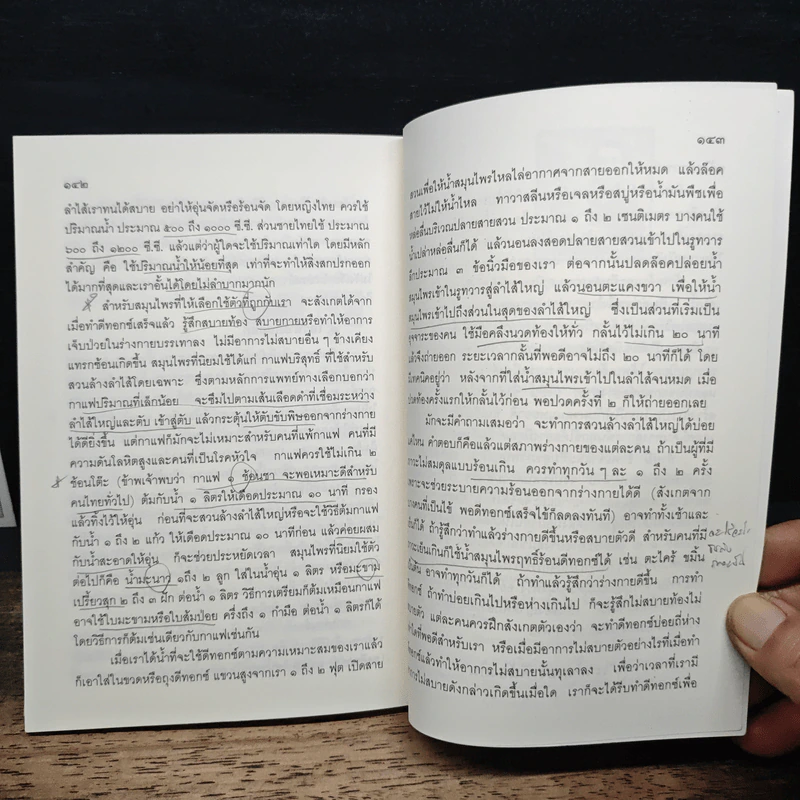 ๑๔๒
ลำไส้เราทนได้สบาย อย่าให้อุ่นจัดหรือร้อนจัด โดยหญิงไทย ควรใช้
ปริมาณน้ำ ประมาณ ๕๐๐ ถึง ๑๐๐๐ ซี.ซี. ส่วนชายไทยใช้ ประมาณ
๖๐๐ ถึง ๑๒๐๐ ซี.ซี. แล้วแต่ว่าผู้ใดจะใช้ปริมาณเท่าใด โดยมีหลัก
สำคัญ คือ ใช้ปริมาณน้ำให้น้อยที่สุด เท่าที่จะทำให้สิ่งสกปรกออก
ได้มากที่สุดและเราอั้นได้โดยไม่ลำบากมากนัก
สำหรับสมุนไพรที่ให้เลือกใช้ตัวที่ถูกกับเรา จะสังเกตได้จาก
เมื่อทำดีทอกซ์เสร็จแล้ว รู้สึกสบายท้อง สบายกายหรือทำให้อาการ
เจ็บป่วยในร่างกายบรรเทาลง ไม่มีอาการไม่สบายอื่น ๆ ข้างเคียง
แทรกซ้อนเกิดขึ้น สมุนไพรที่นิยมใช้ได้แก่ กาแฟบริสุทธิ์ ที่ใช้สำหรับ
สวนล้างลำไส้โดยเฉพาะ ซึ่งตามหลักการแพทย์ทางเลือกบอกว่า
กาแฟปริมาณที่เล็กน้อย จะซึมไปตามเส้นเลือดดำที่เชื่อมระหว่าง
ลำไส้ใหญ่และตับ เข้าสู่ตับ แล้วกระตุ้นให้ตับขับพิษออกจากร่างกาย
ได้ดียิ่งขึ้น แต่กาแฟก็มักจะไม่เหมาะสำหรับคนที่แพ้กาแฟ คนที่มี
ความดันโลหิตสูงและคนที่เป็นโรคหัวใจ กาแฟควรใช้ไม่เกิน ๒
ช้อนโต๊ะ (ข้าพเจ้าพบว่า กาแฟ ๑ ช้อนชา จะพอเหมาะดีสำหรับ
คนไทยทั่วไป) ต้มกับน้ำ ๑ ลิตรให้เดือดประมาณ ๑๐ นาที กรอง
แล้วทิ้งไว้ให้อุ่น ก่อนที่จะสวนล้างลำไส้ใหญ่หรือจะใช้วิธีต้มกาแฟ
กับน้ำ ๑ ถึง ๒ แก้ว ให้เดือดประมาณ ๑๐ นาทีก่อน แล้วค่อยผสม
กับน้ำสะอาดให้อุ่น ก็จะช่วยประหยัดเวลา สมุนไพรที่นิยมใช้ตัว
ต่อไปก็คือ น้ำมะนาว ๑ ถึง ๒ ลูก ใส่ในน้ำอุ่น ๑ ลิตร หรือมะขาม
เปรี้ยวสุก ๒ ถึง ๓ ฝัก ต่อน้ำ ๑ ลิตร วิธีการเตรียมก็ต้มเหมือนกาแฟ
อาจใช้ใบมะขามหรือใบส้มป่อย ครึ่งถึง ๑ กำมือ ต่อน้ำ ๑ ลิตรก็ได้
โดยวิธีการก็ต้มเช่นเดียวกับกาแฟเช่นกัน
เมื่อเราได้น้ำที่จะใช้ดีทอกซ์ตามความเหมาะสมของเราแล้ว
ก็เอาใส่ในขวดหรือถุงดีทอกซ์ แขวนสูงจากเรา ๑ ถึง ๒ ฟุต เปิดสาย
๑๔๓
สวนเพื่อให้น้ำสมุนไพรไหลไล่อากาศจากสายออกให้หมด แล้วล๊อค
สายไว้ไม่ให้น้ำไหล ทาวาสลีนหรือเจลหรือสบู่หรือน้ำมันพืชเพื่อ
หล่อลื่นบริเวณปลายสายสวน ประมาณ ๑ ถึง ๒ เซนติเมตร บางคนใช้
น้ำเปล่าหล่อลื่นก็ได้ แล้วนอนลงสอดปลายสายสวนเข้าไปในรูทวาร
ลึกประมาณ ๓ ข้อนิ้วมือของเรา ต่อจากนั้นปลดล๊อคปล่อยน้ำ
สมุนไพรเข้าในรูทวารสู่ลำไส้ใหญ่ แล้วนอนตะแคงขวา เพื่อให้น้ำ
สมุนไพรเข้าไปถึงส่วนในสุดของลำไส้ใหญ่ ซึ่งเป็นส่วนที่เริ่มเป็น
อุจจาระของคน ใช้มือคลึงนวดท้องให้ทั่ว กลั้นไว้ไม่เกิน ๒๐ นาที
แล้วจึงถ่ายออก ระยะเวลากลั้นที่พอดีอาจไม่ถึง ๒๐ นาทีก็ได้ โดย
มีเทคนิคอยู่ว่า หลังจากที่ใส่น้ำสมุนไพรเข้าไปในลำไส้จนหมด เมื่อ
ปวดท้องครั้งแรกให้กลั้นไว้ก่อน พอปวดครั้งที่ ๒ ก็ให้ถ่ายออกเลย
มักจะมีคำถามเสมอว่า จะทำการสวนล้างลำไส้ใหญ่ได้บ่อย
แค่ไหน คำตอบก็คือแล้วแต่สภาพร่างกายของแต่ละคน ถ้าเป็นผู้ที่มี
ภาวะไม่สมดุลแบบร้อนเกิน ควรทำทุกวัน ๆ ละ ๑ ถึง ๒ ครั้ง
เพราะจะช่วยระบายความร้อนออกจากร่างกายได้ดี (สังเกตจาก
บางคนที่เป็นไข้ พอดีทอกซ์เสร็จไข้ก็ลดลงทันที) อาจทำทั้งเช้าและ
เย็นก็ได้ ถ้ารู้สึกว่าทำแล้วร่างกายดีขึ้นหรือสบายตัวดี สำหรับคนที่มี
ภาวะเย็นเกินก็ใช้น้ำสมุนไพรฤทธิ์ร้อนดีทอกซ์ได้ เช่น ตะไคร้ ขมิ้น
เป็นต้น อาจทำทุกวันก็ได้ ถ้าทำแล้วรู้สึกว่าร่างกายดีขึ้น การทำ
ดีทอกซ์ ถ้าทำบ่อยเกินไปหรือห่างเกินไป ก็จะรู้สึกไม่สบายท้องไม่
สบายตัว แต่ละคนควรฝึกสังเกตตัวเองว่า จะทำดีทอกซ์บ่อยถี่ห่าง
เท่าใดที่พอดีสำหรับเรา หรือเมื่อมีอาการไม่สบายตัวอย่างไรที่เมื่อทำ
ดีทอกซ์แล้วทำให้อาการไม่สบายนั้นทุเลาลง เพื่อว่าเวลาที่เรามี
อาการไม่สบายดังกล่าวเกิดขึ้นเมื่อใด เราก็จะได้รีบทำดีทอกซ์เพื่อ